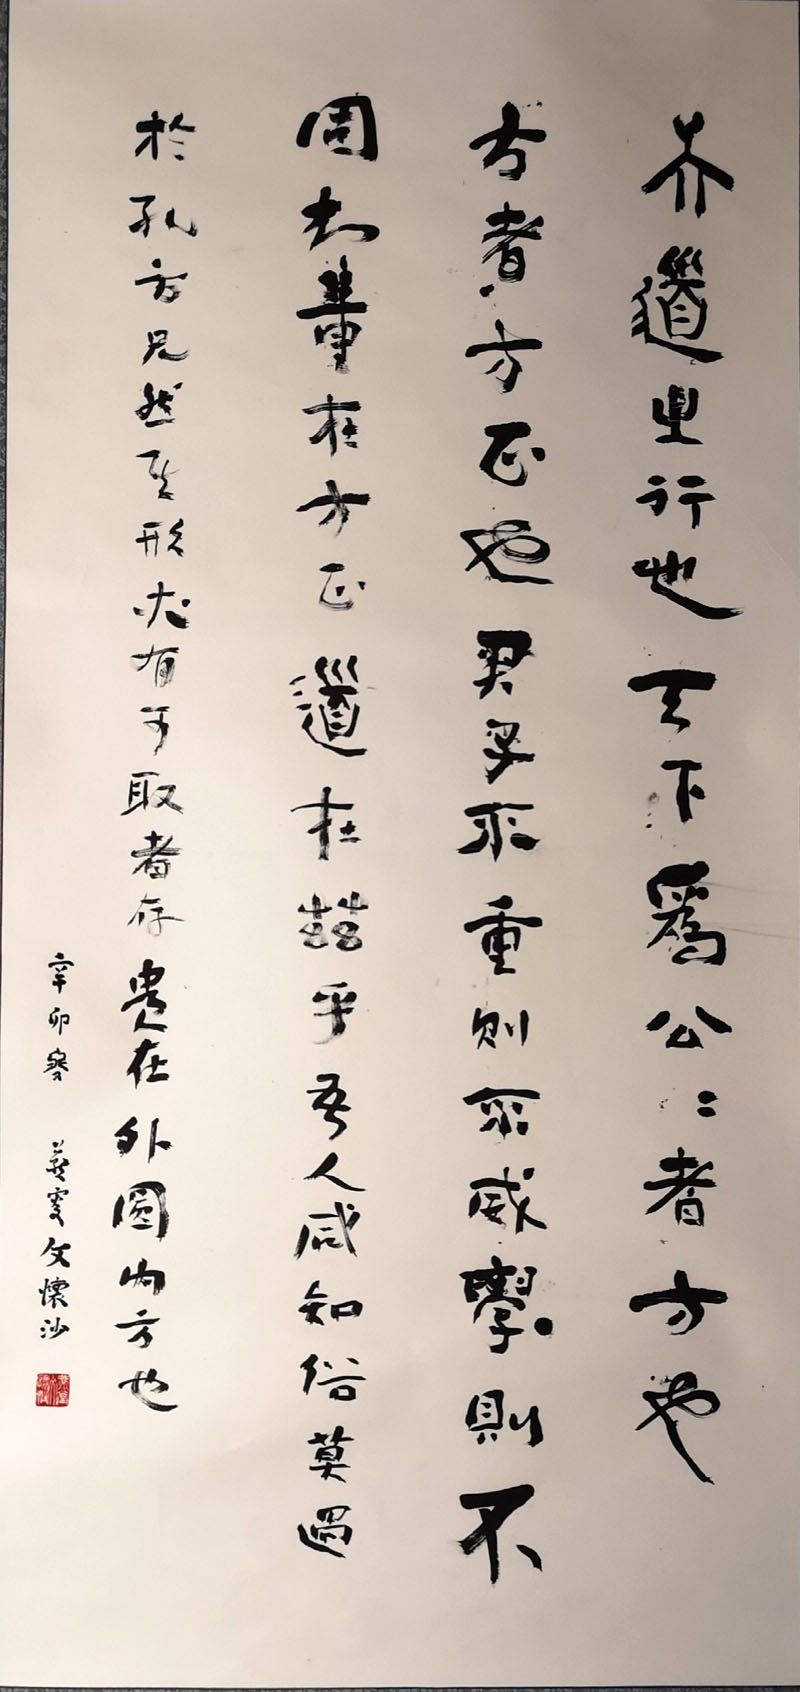 大道之行也天下為公公者方也
方者方正也君子不重則不威學則不
固知重在方正道在茲乎吾人咸知俗莫過
於孔方兄然其形尤有可取者存貴在外圓内方也
辛卯 燕叟文懷沙